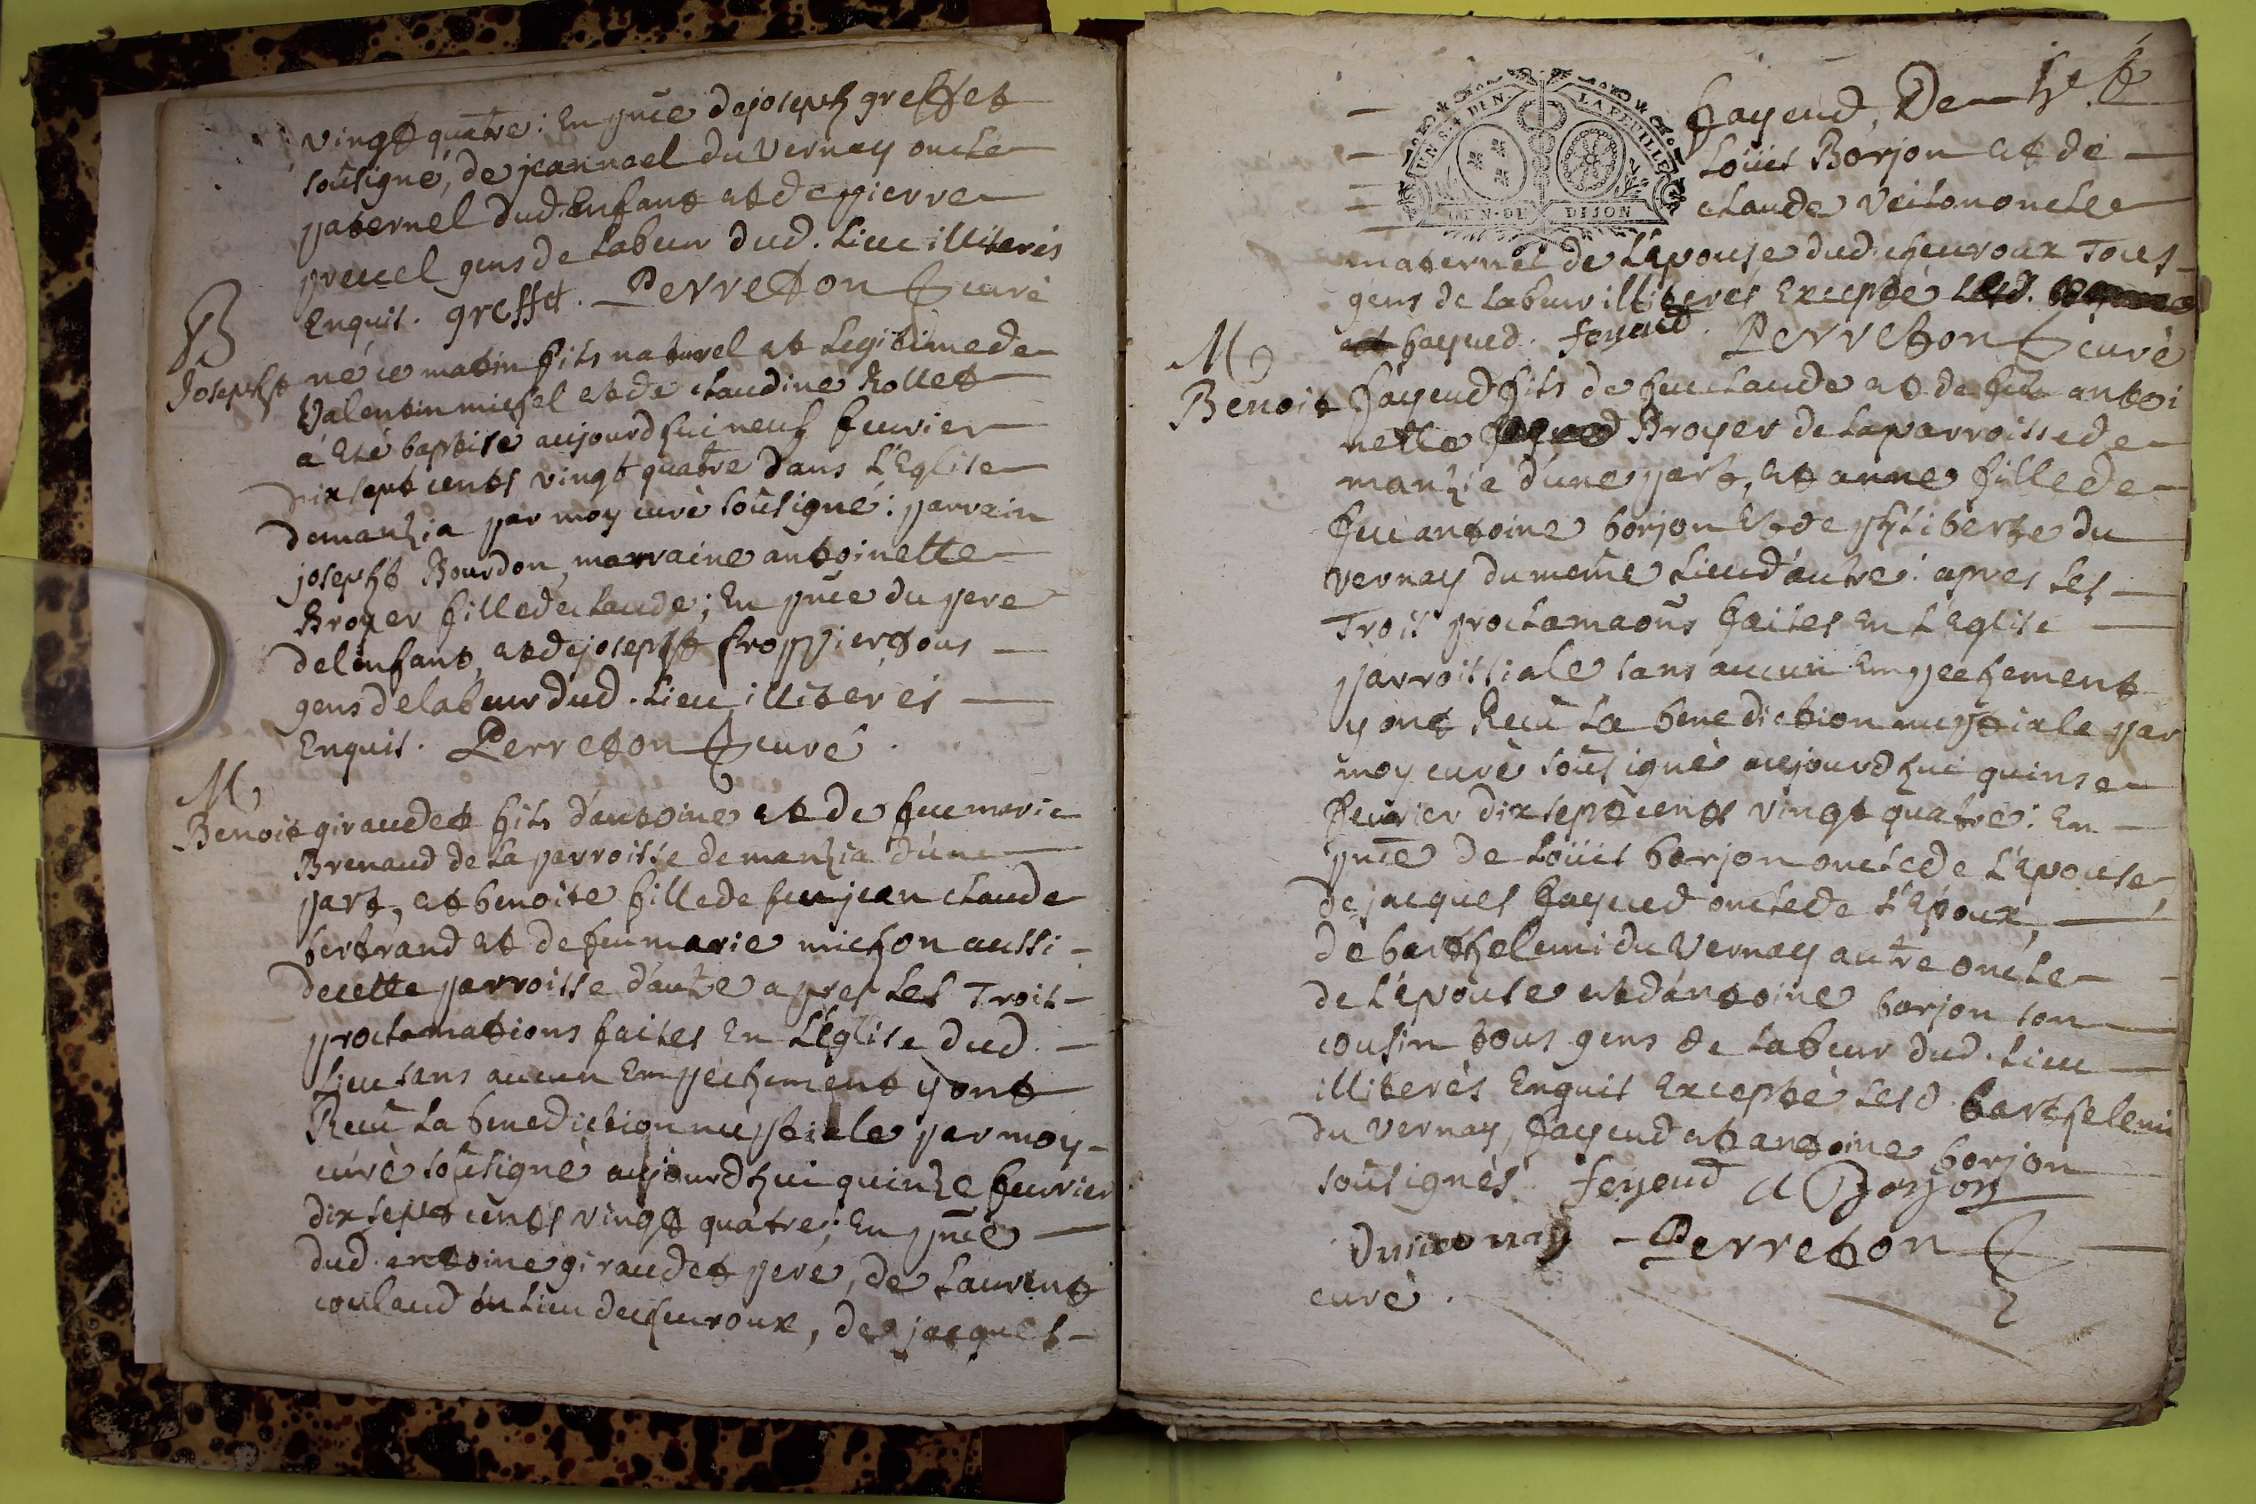 vingt quatre : En pnce de joseph greffet
sousigné, de jean noel du Vernay oncle
paternel dud. Enfant et de pierre
preucel gens de labeur dud. lieu illiterés
Enquis . greffet . Perreton curé
B
Joseph né ce matin fils naturel et Legitime de
Valentin michel et de claudine Rollet
a eté baptisé aujourdhui neuf fevrier
dix sept cents vingt quatre dans L'Eglise
de manzia par moy curé sousigné : parrain
joseph Bourdon, marraine antoinette
Broyer fille de claude ; En pnce du pere
de l'enfant, et de joseph froppier tous
gens de labeur dud . Lieu illiterés
Enquis . Perreton curé .
M
Benoit giraudet fils d'antoine et de feue marie
Brenaud de la parroisse de manzia d'une
part, et benoite fille de feu jean claude
bertrand et de feue marie michon aussi
de cette parroisse d'autre apres Les Trois
proclamations faites En L'Eglise dud .
Lieu sans aucun Empechement y ont
Recu La benediction nuptiale par moy
curé sousigné aujourdhui quinze fevrier
dix sept cents vingt quatre ; En pnce
dud. antoine giraudet pere, de Laurent
coulaud du lieu de cheuroux, de jacques
fayeud, De
Loüis Borjon et de
claude oncle
UN S. 4 DEN. LA FEUILLE
GEN. DE DIJON
maternel de L'Epouse dud. cheuroux Tous
gens de labeur illiterés Excepté
fayeud . feyeud . Perreton curé
M
Benoit fayeud fils de feu claude et de feue antoi
nette Broyer de la parroisse de
manzia d'une part, et anne fille de
feu antoine borjon et de philiberte du
vernay du meme Lieu d'autre : apres Les
Trois proclamaons faites En L'Eglise
parroissiale sans aucun Empechement
y ont Recu La benediction nuptiale par
moy curé sousigné aujourdhui quinse
fevrier dix sept cents vingt quatre : En
pnce de Loüis borjon oncle de L'Epouse,
de jacques fayeud oncle de L'Epoux,
de barthelemi du Vernay autre oncle
de L'Epouse et d'antoine borjon son
cousin tous gens de Labeur dud . Lieu
illiterés Enquis Excepté Lesd. barthelemi
du vernay, fayeud et antoine borjon
sousignés feyeud A Borjon
Duvernay Perreton
curé .